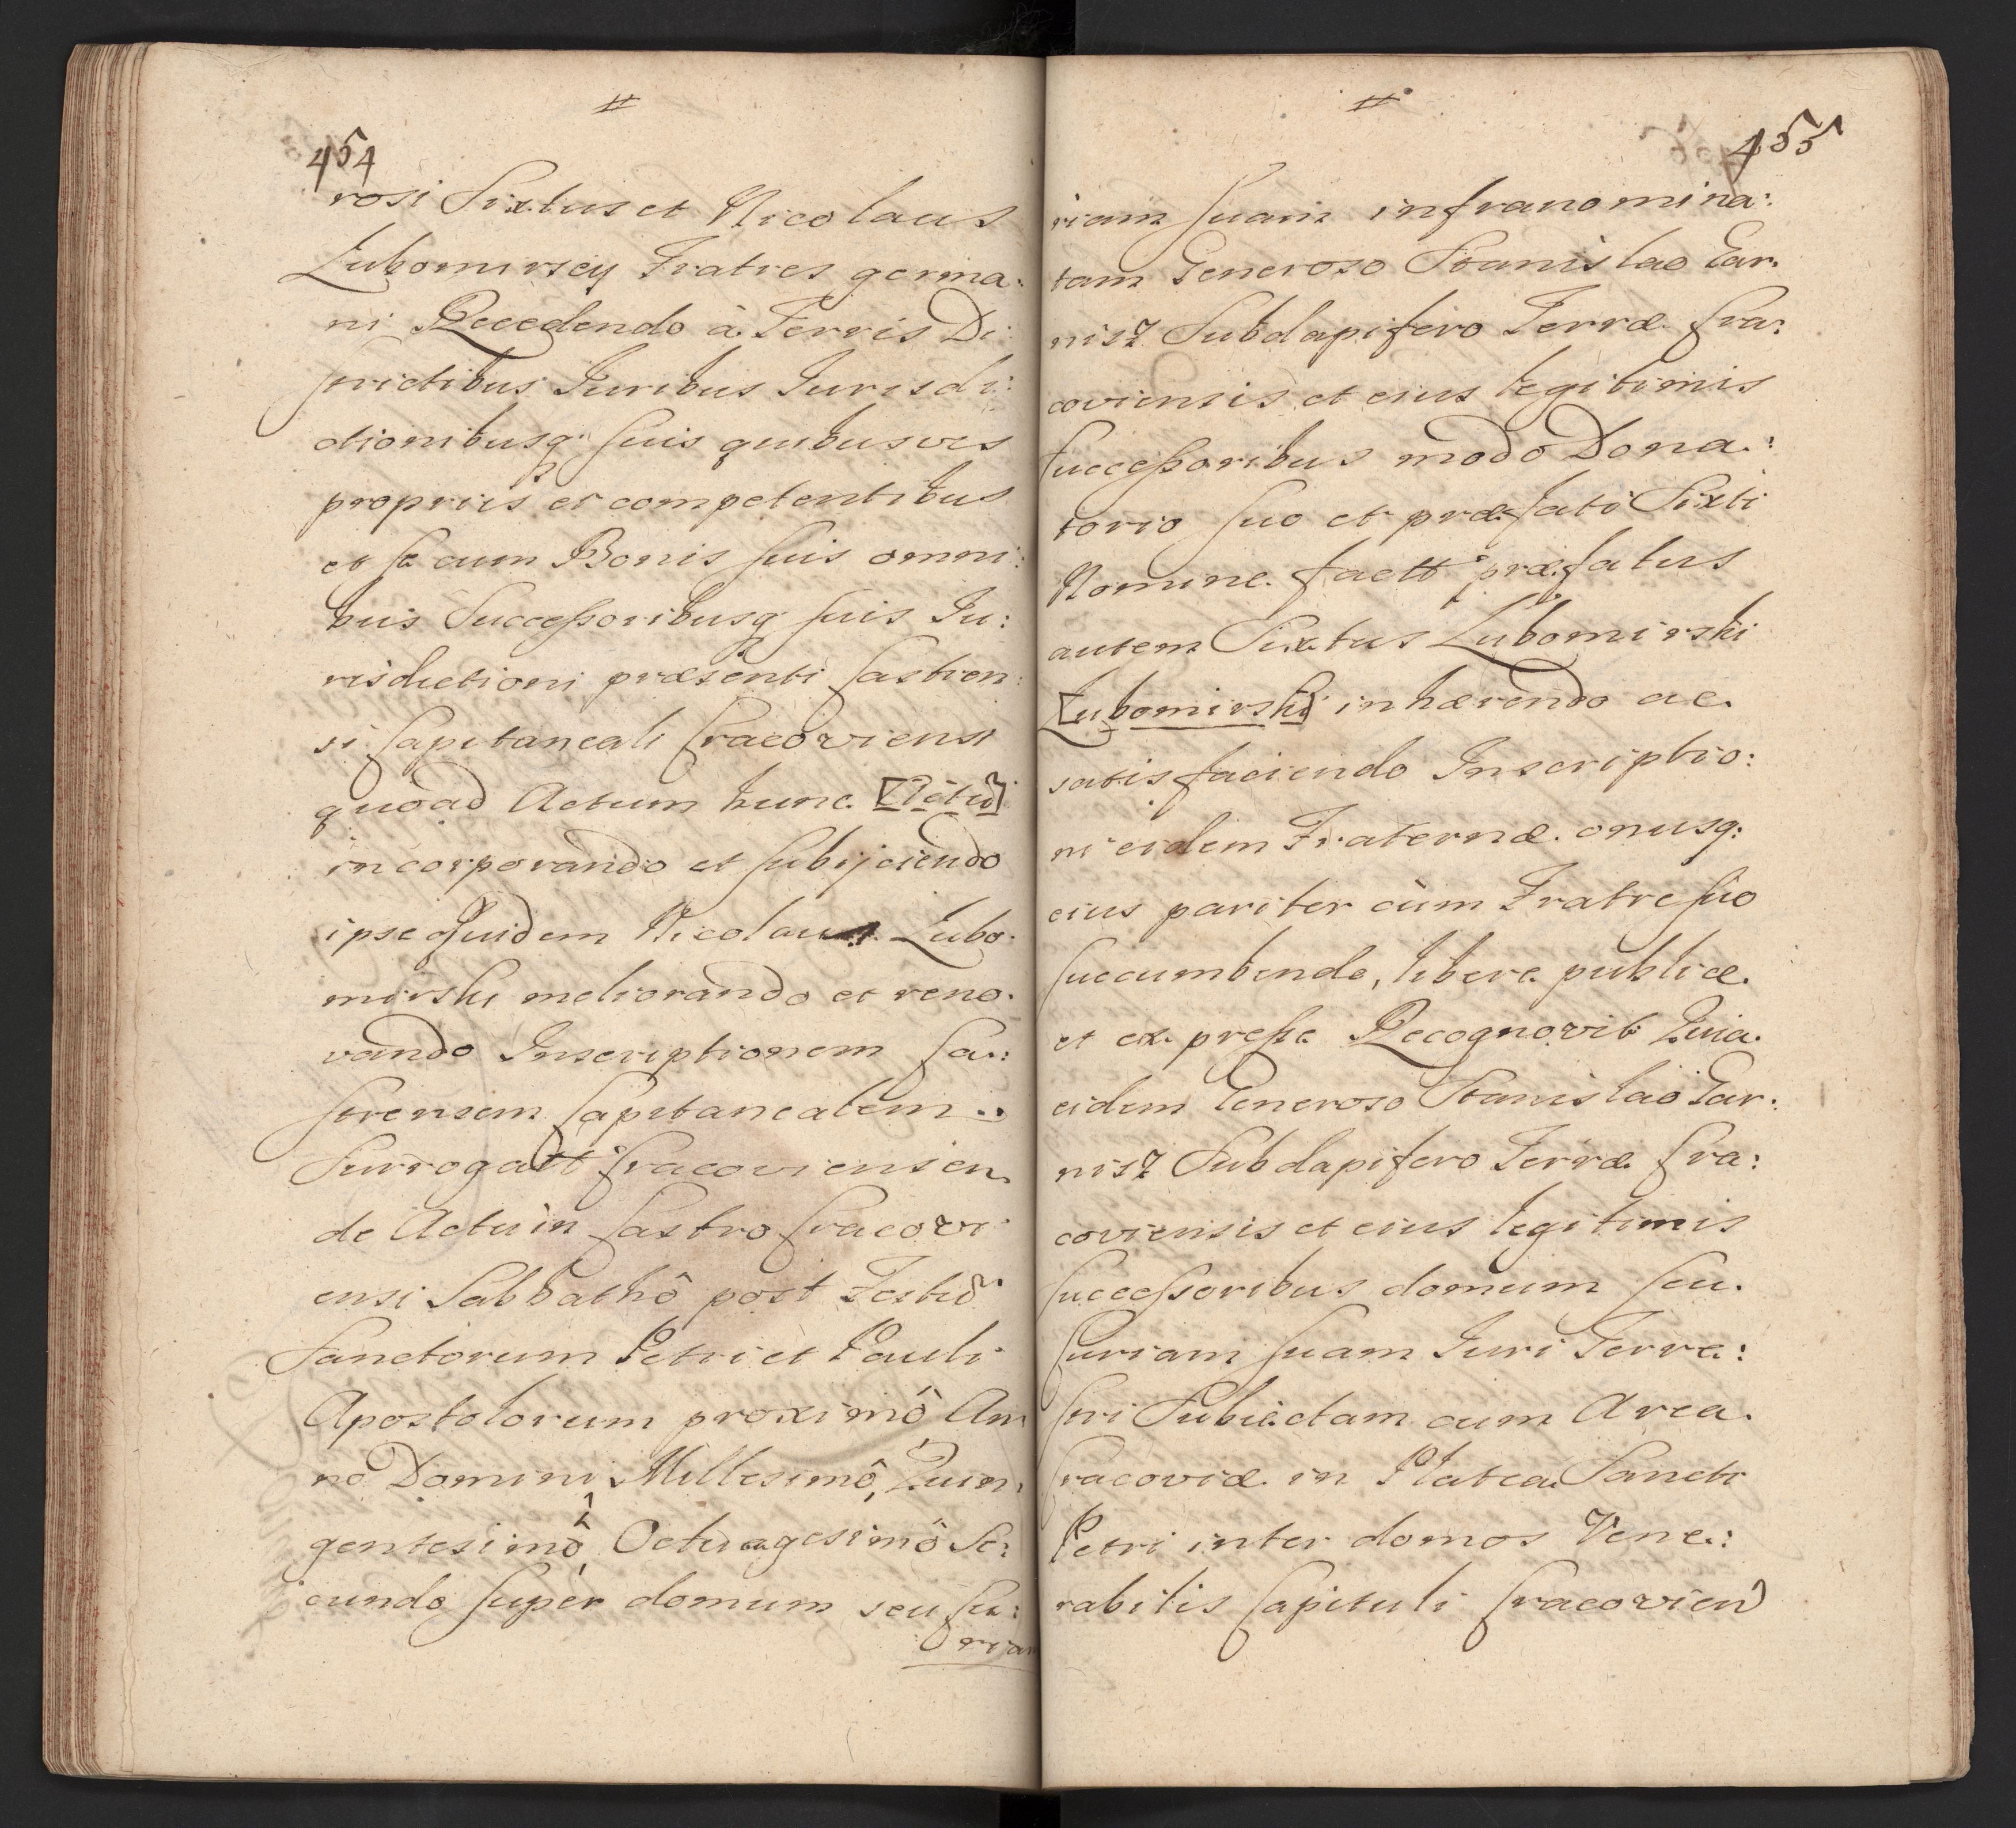 #
454
rosi Sixtus et Nicolaus
Lubomirscy Fratres germa:
ni Recedendo à Terris Di:
strictibus Iuribus Iurisdi:
ctionibusq; suis quibusvis
proprijs et competentibus
et se cum Bonis suis omni:
bus Successoribusq; suis Iu:
risdictioni præsenti Castren:
si Capitaneali Cracoviensi
quoad Actum hunc [Actũ]
incorporando et subijciendo
ipse quidem Nicolaus Lubo:
mirski meliorando et reno:
vando Inscriptionem Ca:
strensem Capitanealem
Surrogatt Cracoviensem
de Actu in Castro Cracovi
ensi Sabbathô post Festũ
Sanctorum Petri et Pauli
Apostolorum proximô An
no Domini Millesimô, Quin:
gentesimô, Octuagesimô Se:
cundo super domum seu Cu:
riam
#
455
riam suam infranomina:
tam Generoso Stanislao Gar:
nisz Subdapifero Terræ Cra:
coviensis et eius legitimis
successoribus modo Dona:
torio suo et præfati Sixti
Nomine factt præfatus
autem Sixtus Lubomirski
[Lubomirski] inhærendo ac
satisfaciendo Inscriptio:
ni eidem Fraternæ onusq;
eius pariter cùm Fratre suo
succumbendo, libere publice
et expresse Recognovit Quia
eidem Generoso Stanislao Gar:
nisz Subdapifero Terræ Cra:
coviensis et eius legitimis
successoribus domum seu
Curiam suam Iuri Terre:
stri Subiectam cum Area
Cracoviæ in Platea Sancti
Petri inter domos Vene:
rabilis Capituli Cracovien